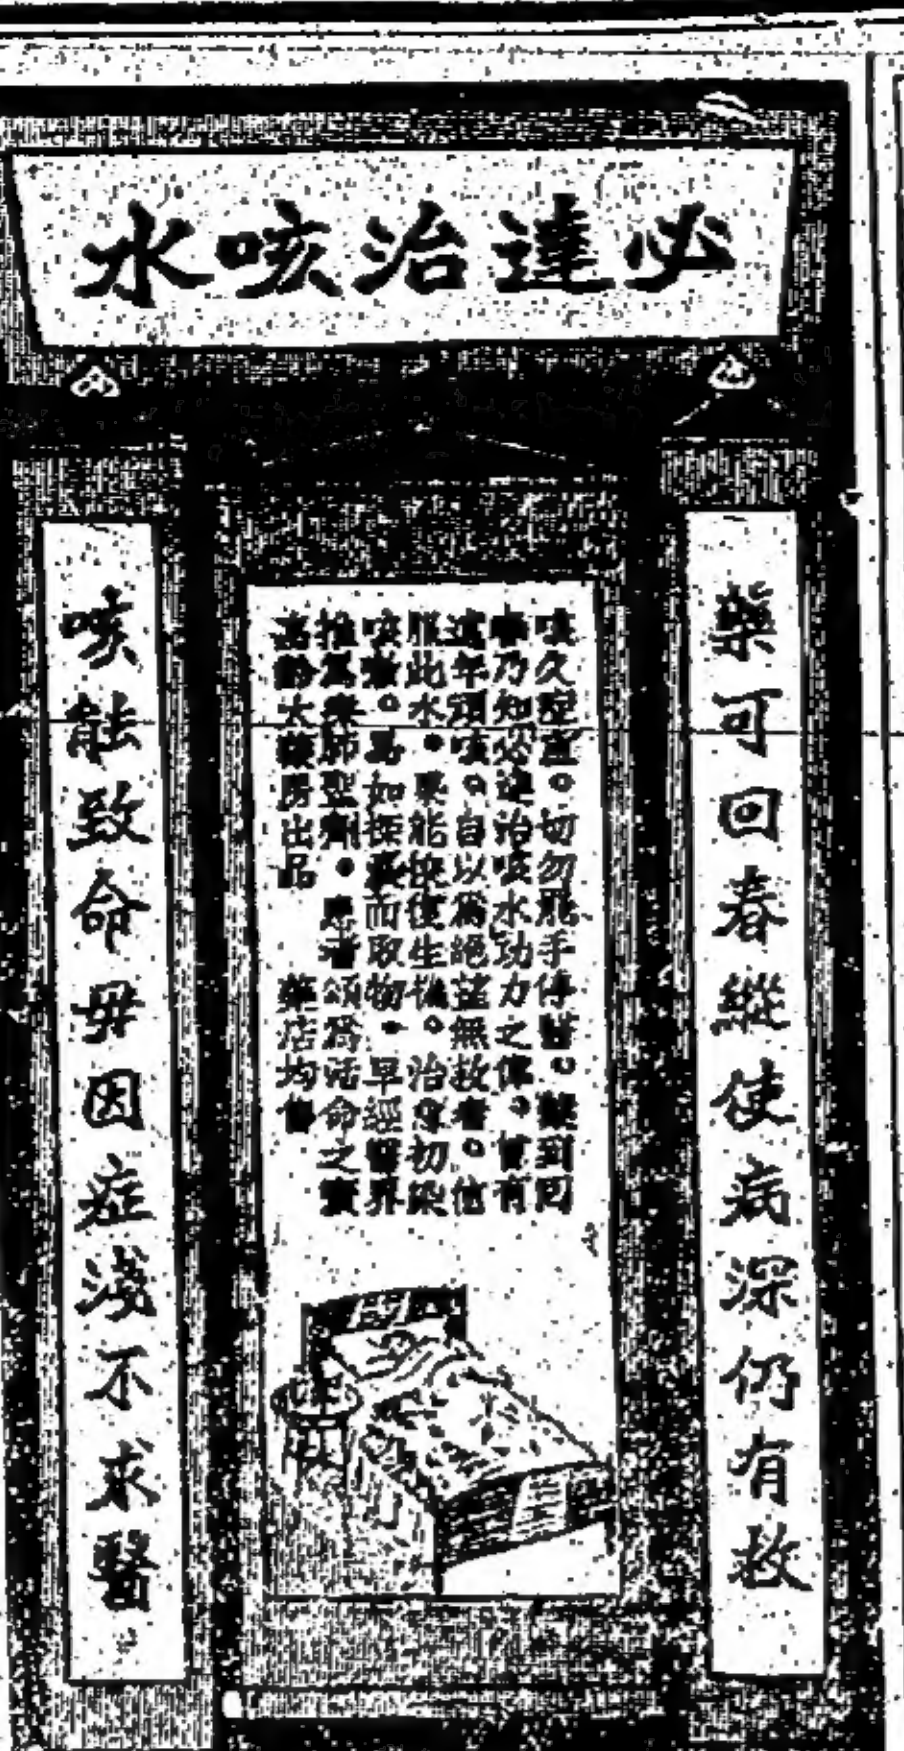 必達治咳水
藥可回春縱使病深仍有救
咳久。切勿手停醫。藥到回
乃知必達治咳水功力之偉。曾有
年頑咳。自以為絕望無救者。信
服此水。果能恢復生機。治初染
咳嗽。易如探囊而取物。早經醫界
推為療肺聖劑。患者頌為活命之寶
大藥房出品 藥店均售
咳能致命毋因症淺不求醫